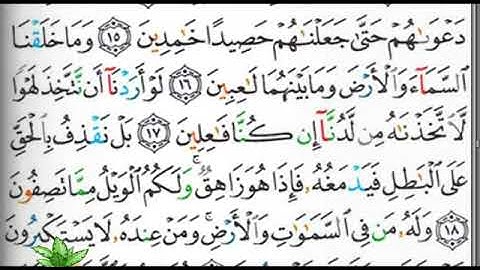 دَعْوَىٰهُمْ حَتَّىٰ جَعَلْنَٰهُمْ حَصِيدًا خَٰمِدِينَ ١٥ وَمَا خَلَقْنَا
ٱلسَّمَآءَ وَٱلْأَرْضَ وَمَا بَيْنَهُمَا لَٰعِبِينَ ١٦ لَوْ أَرَدْنَآ أَن نَّتَّخِذَ لَهْوًا
لَّٱتَّخَذْنَٰهُ مِن لَّدُنَّآ إِن كُنَّا فَٰعِلِينَ ١٧ بَلْ نَقْذِفُ بِٱلْحَقِّ
عَلَى ٱلْبَٰطِلِ فَيَدْمَغُهُۥ فَإِذَا هُوَ زَاهِقٌ ۚ وَلَكُمُ ٱلْوَيْلُ مِمَّا تَصِفُونَ
١٨ وَلَهُۥ مَن فِى ٱلسَّمَٰوَٰتِ وَٱلْأَرْضِ ۚ وَمَنْ عِندَهُۥ لَا يَسْتَكْبِرُونَ